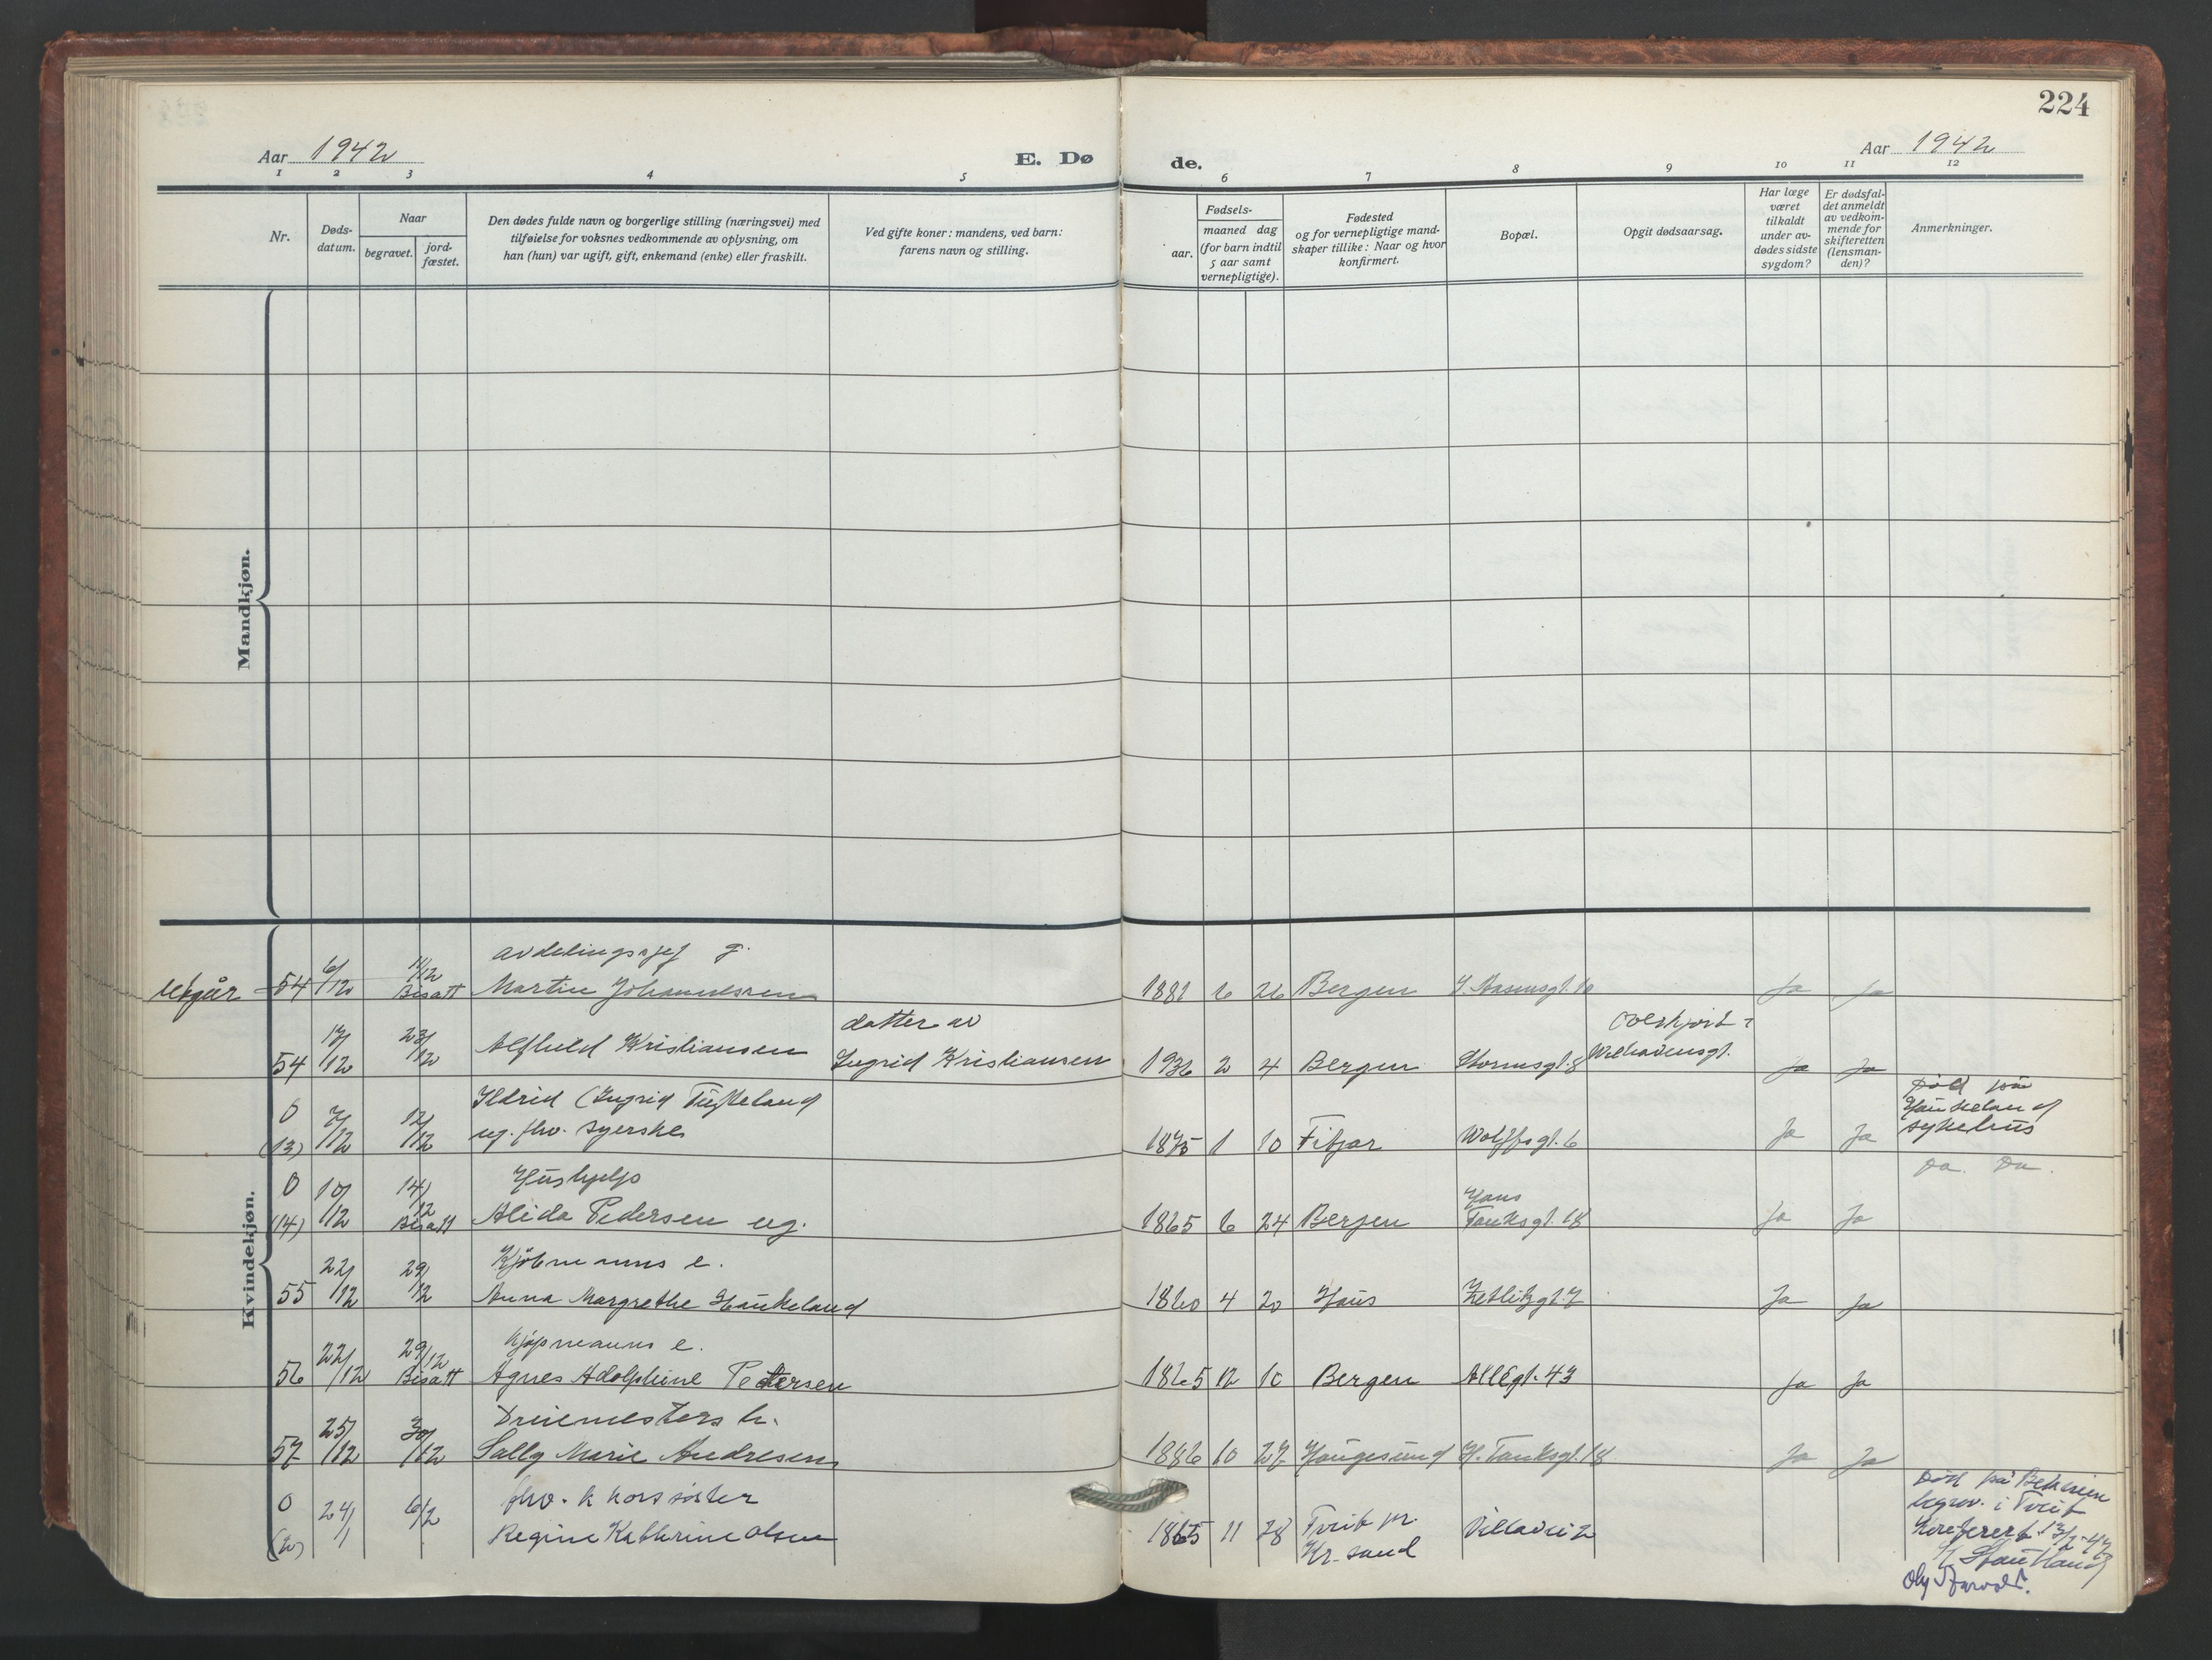 224
Aar 1942
E. Dø
de.
Aar 1942
1 2 3 4 5 6 7 8 9 10 11 12
Nr.
Døds-
datum.
Naar
begravet.
jord-
fæstet.
Den dødes fulde navn og borgerlige stilling (næringsvei) med
tilføielse for voksnes vedkommende av oplysning, om
han (hun) var ugift, gift, enkemand (enke) eller fraskilt.
Ved gifte koner: mandens, ved barn:
farens navn og stilling.
Fødsels-
aar.
maaned dag
(for barn indtil
5 aar samt
vernepligtige).
Fødested
og for vernepligtige mand-
skaper tillike: Naar og hvor
konfirmert.
Bopæl.
Opgit dødsaarsag.
Har læge
været
tilkaldt
under av-
dødes sidste
sygdom?
Er dødsfal-
det anmeldt
av vedkom-
mende for
skifteretten
(lensman-
den)?
Anmerkninger.
Mandkjøn.
Kvindekjøn.
avdelingssjef g.
Utgår 54 6/12 11/12 Bisatt Martin Johannessen 1881 6 26 Bergen 10 Ja Ja
datter av
54 17/12 23/12 Alfhild Kristiansen Ingrid Kristiansen 1936 2 4 Bergen Stormsgt. 8 Overkjørt i Ja Ja
Ildrid (Ingrid
0 (13) 7/12 12/12 ug. fhv. syerske 1875 1 10 Fitjar Wolffsgt. 6 Ja Ja Død på
Haukeland
sykehus
Hushjelp
0 (14) 10/12 14/12 Bisatt Alida Pedersen ug. 1865 6 24 Bergen Hans
Tanksgt. 18 Ja Ja Do. Do.
Kjøbmanns e.
55 22/12 29/12 Anna Margrethe Haukeland 1860 4 20 Haus Zetlitzgt. 7 Ja Ja
Kjøpmanns e.
56 22/12 29/12 Bisatt Agnes Adolphine Petersen 1865 12 10 Bergen Allégt. 43 Ja Ja
57 25/12 30/12 Sally Marie Andresen 1886 10 27 Haugesund H. Tanksgt. 18 Ja Ja
fhv. korssøster
0 (2) 24/1 6/2 Regine Kathrine Olsen 1865 11 28 Tveit pr.
Kr.sand Villavei 2 Død på Betanien
begrav. i Tveit